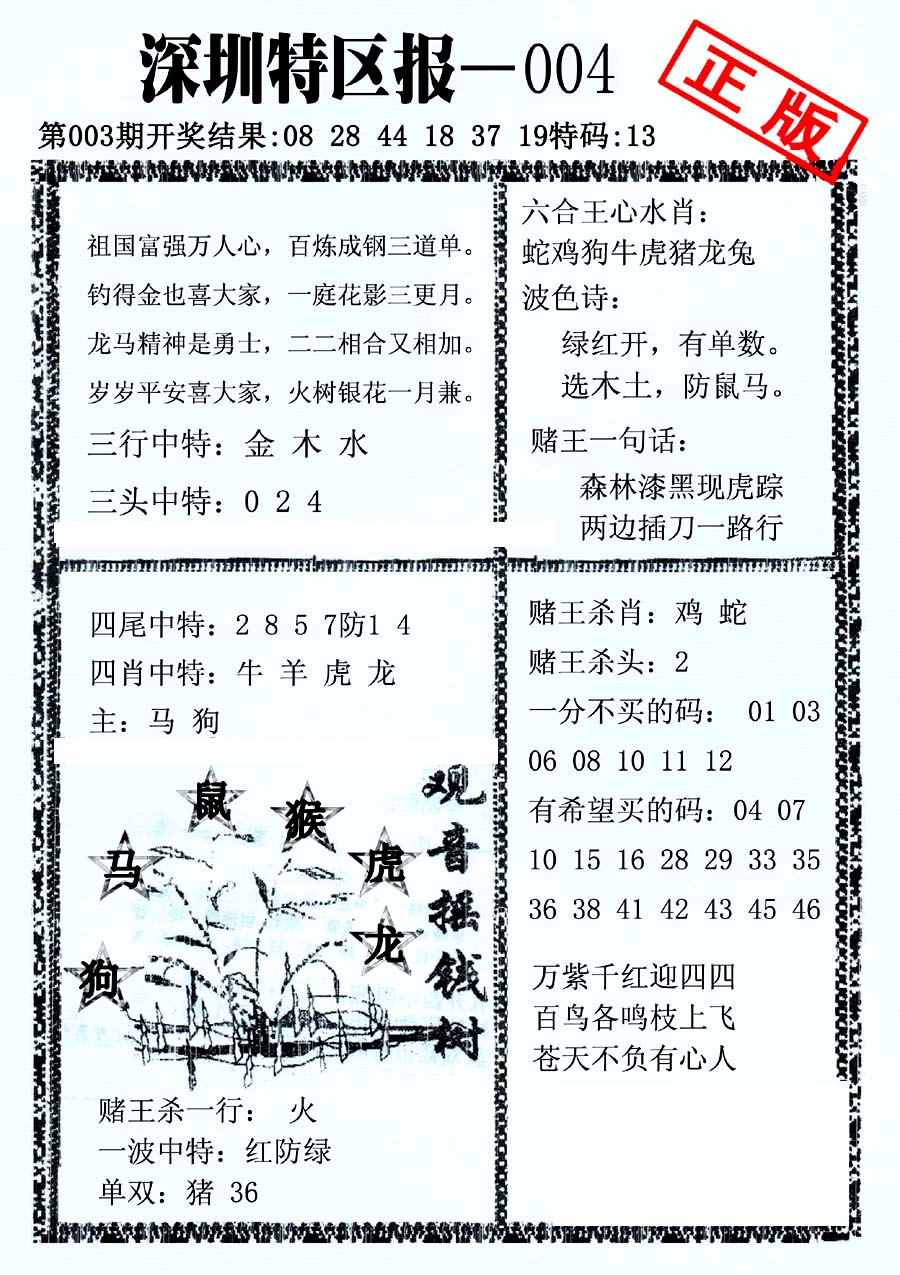 深圳特区报—004
正版
第003期开奖结果:08 28 44 18 37 19特码:13
祖国富强万人心，百炼成钢三道单。
钓得金也喜大家，一庭花影三更月。
龙马精神是勇士，二二相合又相加。
岁岁平安喜大家，火树银花一月兼。
三行中特：金 木 水
三头中特：0 2 4
六合王心水肖：
蛇鸡狗牛虎猪龙兔
波色诗：
绿红开，有单数。
选木土，防鼠马。
赌王一句话：
森林漆黑现虎踪
两边插刀一路行
四尾中特：2 8 5 7防1 4
四肖中特：牛 羊 虎 龙
主：马 狗
鼠
猴
马
虎
龙
狗
观音摇钱树
赌王杀一行： 火
一波中特：红防绿
单双：猪 36
赌王杀肖：鸡 蛇
赌王杀头：2
一分不买的码： 01 03
06 08 10 11 12
有希望买的码：04 07
10 15 16 28 29 33 35
36 38 41 42 43 45 46
万紫千红迎四四
百鸟各鸣枝上飞
苍天不负有心人